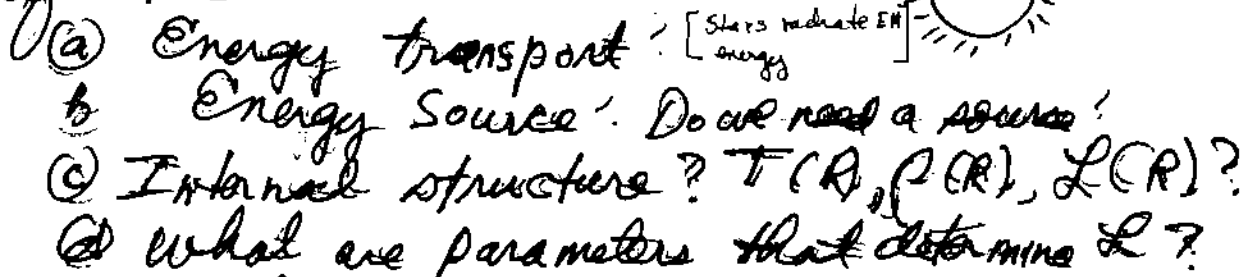 (a) Energy transport: [Stars radiate EM energy]
b Energy Source: Do we need a source?
(c) Internal structure? T(R), ρ(R), L(R)?
(d) What are parameters that determine L?